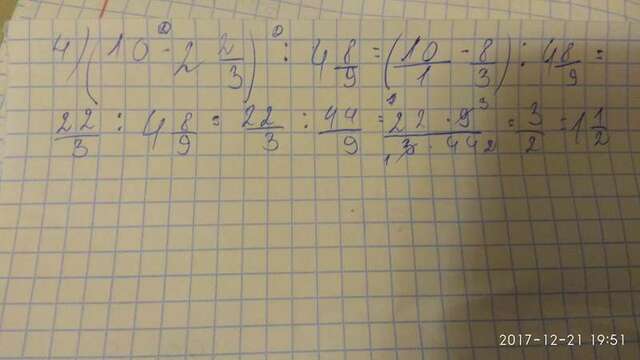 4) (10 - 2 2/3) : 4 8/9 = (10/1 - 8/3) : 4 8/9 =
22/3 : 4 8/9 = 22/3 : 44/9 = 22 · 9/3 · 44 = 3/2 = 1 1/2
2017-12-21 19:51